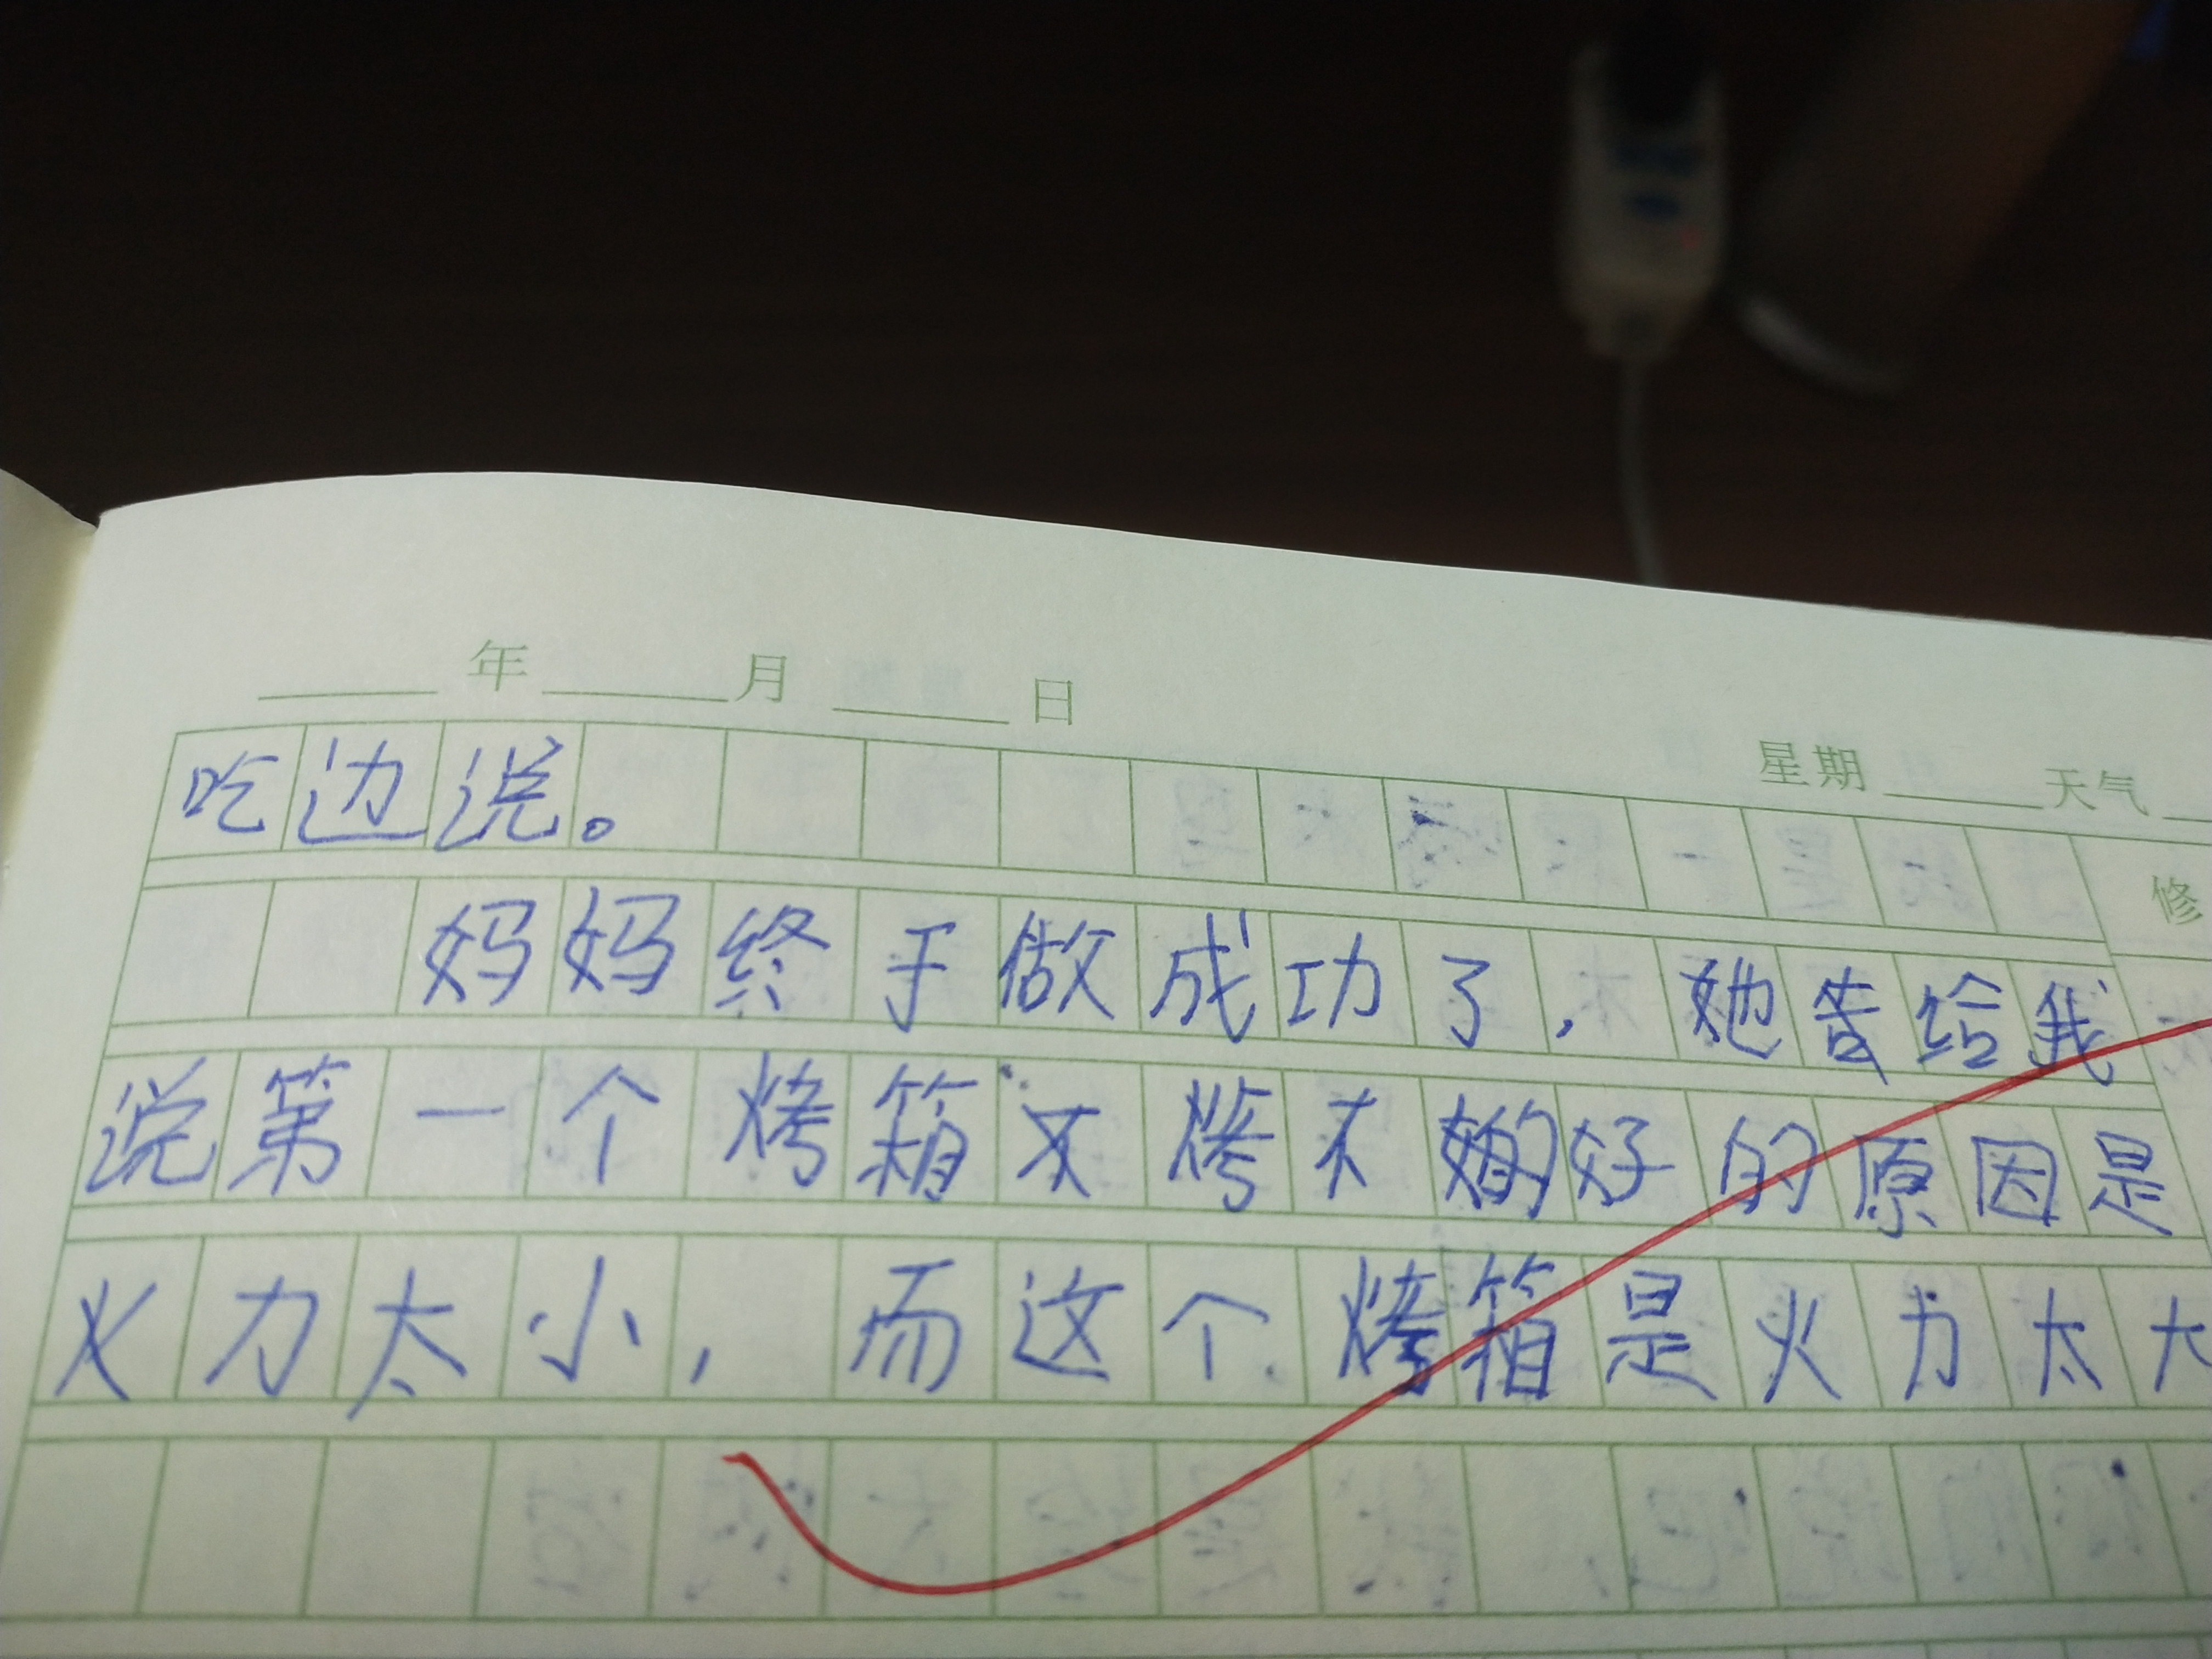 年 月 日
星期 天气
吃边说。
修
妈妈终于做成功了,她告给我
说第一个烤箱烤不好的原因是
火力太小,而这个烤箱是火力太大